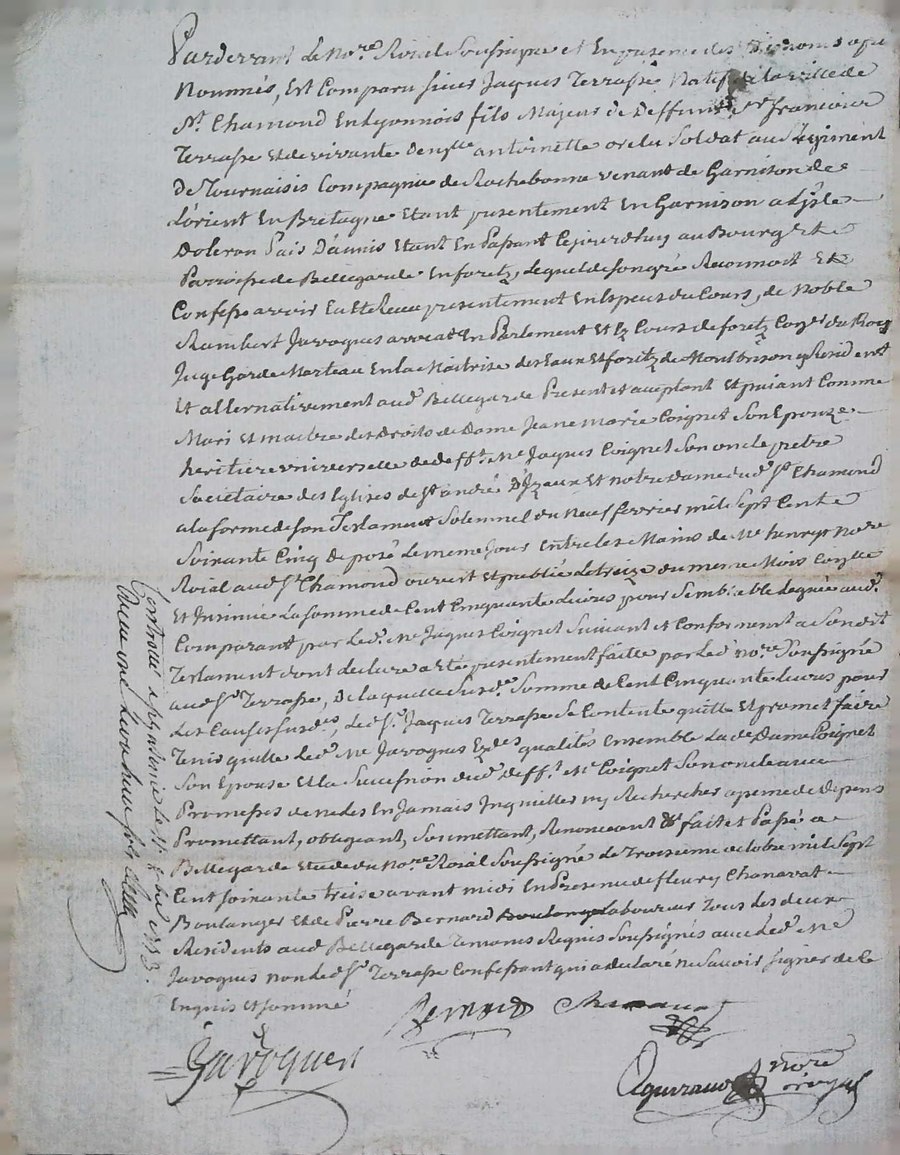 Pardevant le No.re Roial Soussigné et En presence des Temoins apres
Nommés, Est Comparu sieur Jaques Terrasse Natif de la ville de
St. Chamond En Lyonnois fils Majeur de Deffunt Sr. francois
Terrasse Et de vivante Demlle antoinette soldat au Regiment
De Tournaisis Compagnie de Rochebonne venant de Garnison de
L'orient En Bretagne Etant presentement En Garnison a L'jsle
Doleron Païs D'aunis Etant En Passant Cejourdhuy au Bourg Et
Parroisse de Bellegarde En foretz, Lequel de son gré Reconnoit Et
Confesse avoir Eu Et Receu presentement En Especes du Cours, de Noble
Rambert Javogues avocat En Parlement Et Cours de foretz Coner. du Roy
Juge Garde Marteau En la Maitrise des Eaux Et foretz de Montbrison y Resident
Et alternativement aud. Bellegarde Present et aceptant Et paiant Comme
Mari et maitre des Droits de Dame Jeane Marie Coignet Son Epouze
heritiere universelle de defft. Me Jaques Coignet Son oncle pretre
Societaire des Eglises de St. andré D'Izeaux Et notre Dame dud. St. Chamond
a la forme de son Testament Solemnel du Neuf fevrier mil Sept Cent
Soixante Cinq deposé le meme Jour Entre les Mains de Me henrys No.re
Roial aud. St. Chamond ouvert Et publié le treize du meme Mois
Et Insinué La somme de Cent Cinquante Livres pour Semblable leguée aud.
Comparant par led. Me Jaques Coignet Suivant et Conforment a Son dit
Testament dont lecture a Eté presentement faitte par Led. No.re Soussigné
aud. Sr. Terrasse, De laquelle susde. Somme de Cent Cinquante Livres pour
Les Causes susdes., led. Sr. Jaques Terrasse Se Contente quitte Et promet faire
Tenir quitte Led. Me Javogues Esdes. qualités Ensemble La de. Dame Coignet
Son Epouse Et la Succession dud. defft. Me Coignet Son oncle avec
Promesses de ne les En Jamais Inquietter ny Rechercher a peine de Depens
Promettant, obligeant, Soumettant, Renonceant &a fait et Passé a
Bellegarde Etude du No.re Roial Soussigné le Troisieme octobre mil Sept
Cent Soixante treise avant midi En Presence de fleury Chanavat
Boulanger Et de Pierre Bernard Laboureur Tous les deux
Residents aud. Bellegarde Temoins Requis Soussignés avec Led. Me
Javogues non led. Sr. Terrasse Confessant qui a declaré ne Savoir Signer de Ce
Enquis Et Sommé
Bernard Chanavat
Javogues
No.re
Controllé